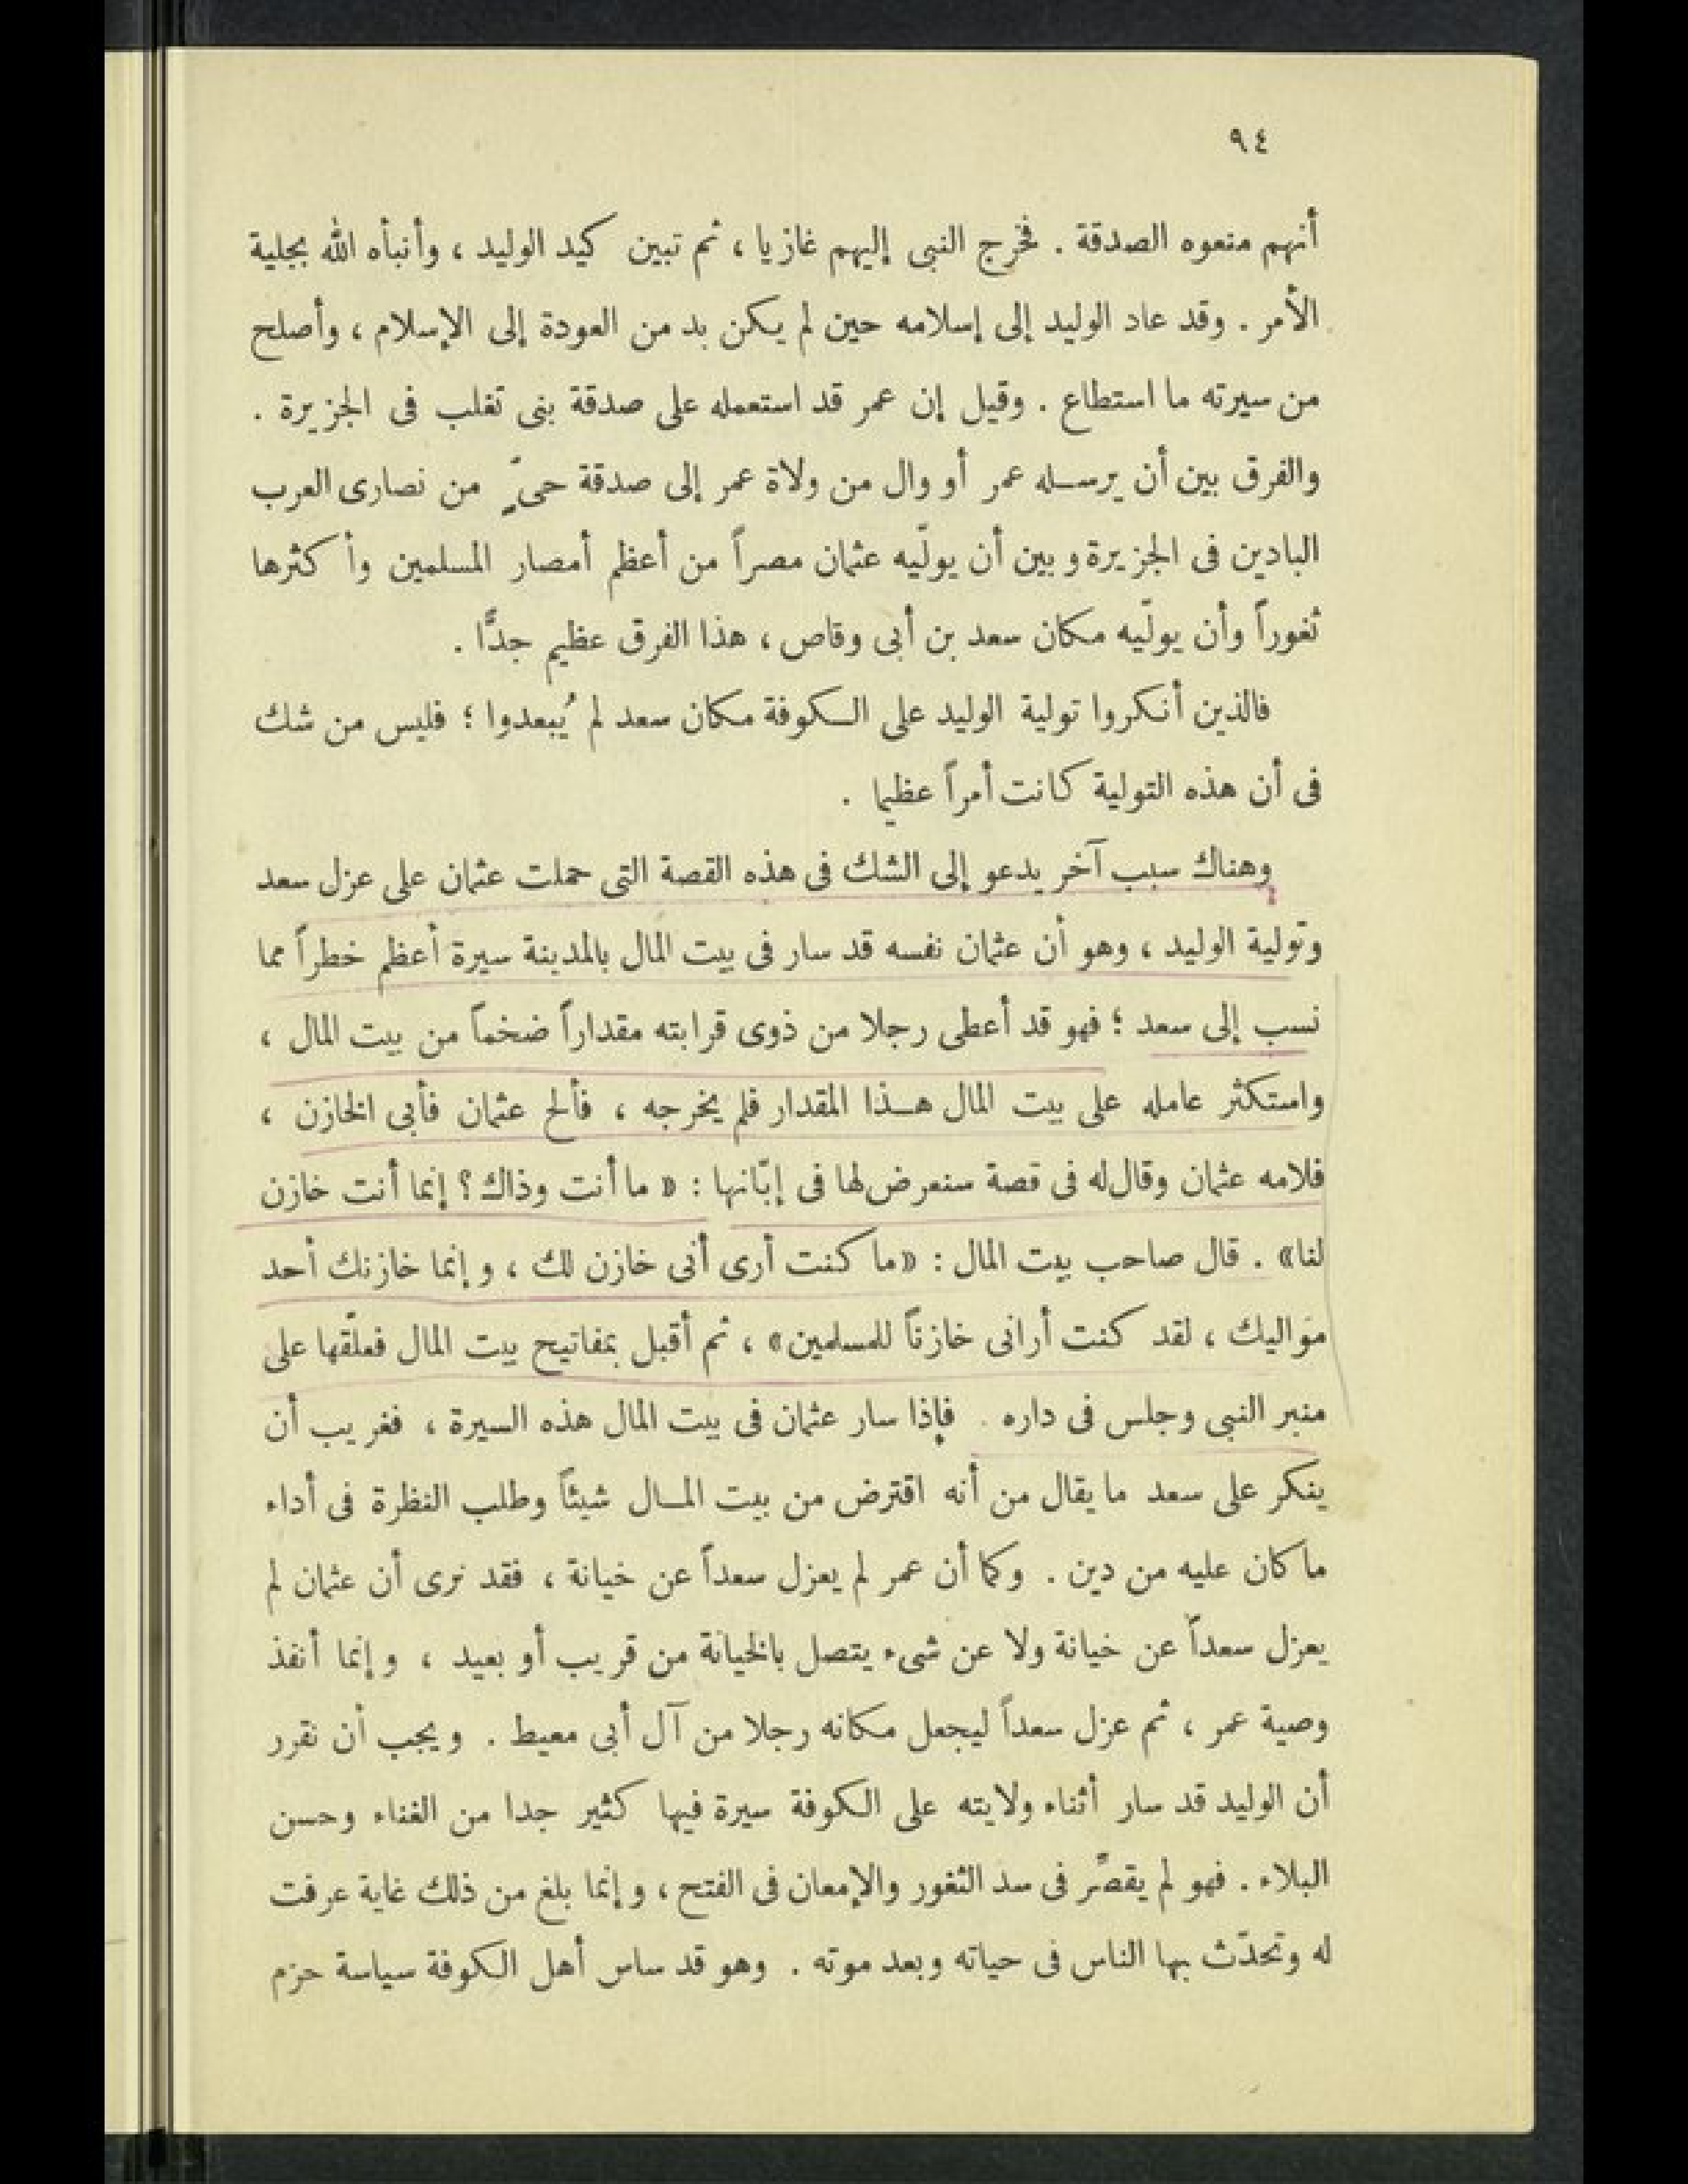 ٩٤
أنهم منعوه الصدقة . فخرج النبى إليهم غازيا ، ثم تبين كيد الوليد ، وأنبأه الله بجلية
الأمر . وقد عاد الوليد إلى إسلامه حين لم يكن بد من العودة إلى الإسلام ، وأصلح
من سيرته ما استطاع . وقيل إن عمر قد استعمله على صدقة بنى تغلب فى الجزيرة .
والفرق بين أن يرسله عمر أو وال من ولاة عمر إلى صدقة حىٍّ من نصارى العرب
البادين فى الجزيرة وبين أن يولّيه عثمان مصراً من أعظم أمصار المسلمين وأكثرها
ثغوراً وأن يولّيه مكان سعد بن أبى وقاص ، هذا الفرق عظيم جدًّا .
فالذين أنكروا تولية الوليد على الكوفة مكان سعد لم يُبعدوا ؛ فليس من شك
فى أن هذه التولية كانت أمراً عظيما .
وهناك سبب آخر يدعو إلى الشك فى هذه القصة التى حملت عثمان على عزل سعد
وتولية الوليد ، وهو أن عثمان نفسه قد سار فى بيت المال بالمدينة سيرة أعظم خطراً مما
نسب إلى سعد ؛ فهو قد أعطى رجلا من ذوى قرابته مقداراً ضخماً من بيت المال ،
واستكثر عامله على بيت المال هذا المقدار فلم يخرجه ، فألح عثمان فأبى الخازن ،
فلامه عثمان وقال له فى قصة سنعرض لها فى إبّانها : « ما أنت وذاك؟ إنما أنت خازن
لنا» . قال صاحب بيت المال : «ما كنت أرى أنى خازن لك ، وإنما خازنك أحد
مَواليك ، لقد كنت أرانى خازناً للمسلمين» ، ثم أقبل بمفاتيح بيت المال فعلّقها على
منبر النبى وجلس فى داره . فإذا سار عثمان فى بيت المال هذه السيرة ، فغريب أن
ينكر على سعد ما يقال من أنه اقترض من بيت المال شيئاً وطلب النظرة فى أداء
ما كان عليه من دين . وكما أن عمر لم يعزل سعداً عن خيانة ، فقد نرى أن عثمان لم
يعزل سعداً عن خيانة ولا عن شىء يتصل بالخيانة من قريب أو بعيد ، وإنما أنفذ
وصية عمر ، ثم عزل سعداً ليجعل مكانه رجلا من آل أبى معيط . ويجب أن نقرر
أن الوليد قد سار أثناء ولايته على الكوفة سيرة فيها كثير جدا من الغناء وحسن
البلاء . فهو لم يقصِّر فى سد الثغور والإمعان فى الفتح ، وإنما بلغ من ذلك غاية عرفت
له وتحدّث بها الناس فى حياته وبعد موته . وهو قد ساس أهل الكوفة سياسة حزم